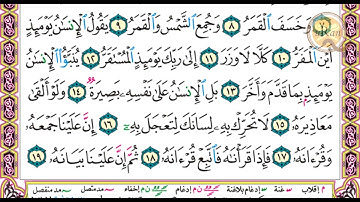 وَخَسَفَ الْقَمَرُ ٨ وَجُمِعَ الشَّمْسُ وَالْقَمَرُ ٩ يَقُولُ الْإِنسَٰنُ يَوْمَئِذٍ
أَيْنَ الْمَفَرُّ ١٠ كَلَّا لَا وَزَرَ ١١ إِلَىٰ رَبِّكَ يَوْمَئِذٍ الْمُسْتَقَرُّ ١٢ يُنَبَّؤُا الْإِنسَٰنُ
يَوْمَئِذٍ بِمَا قَدَّمَ وَأَخَّرَ ١٣ بَلِ الْإِنسَٰنُ عَلَىٰ نَفْسِهِۦ بَصِيرَةٌ ١٤ وَلَوْ أَلْقَىٰ
مَعَاذِيرَهُۥ ١٥ لَا تُحَرِّكْ بِهِۦ لِسَانَكَ لِتَعْجَلَ بِهِۦٓ ١٦ إِنَّ عَلَيْنَا جَمْعَهُۥ
وَقُرْءَانَهُۥ ١٧ فَإِذَا قَرَأْنَٰهُ فَاتَّبِعْ قُرْءَانَهُۥ ١٨ ثُمَّ إِنَّ عَلَيْنَا بَيَانَهُۥ ١٩
م إقلاب غنة إدغام إدغام بلاغنة ن م إدغام ن م إخفاء مد متصل مد منفصل